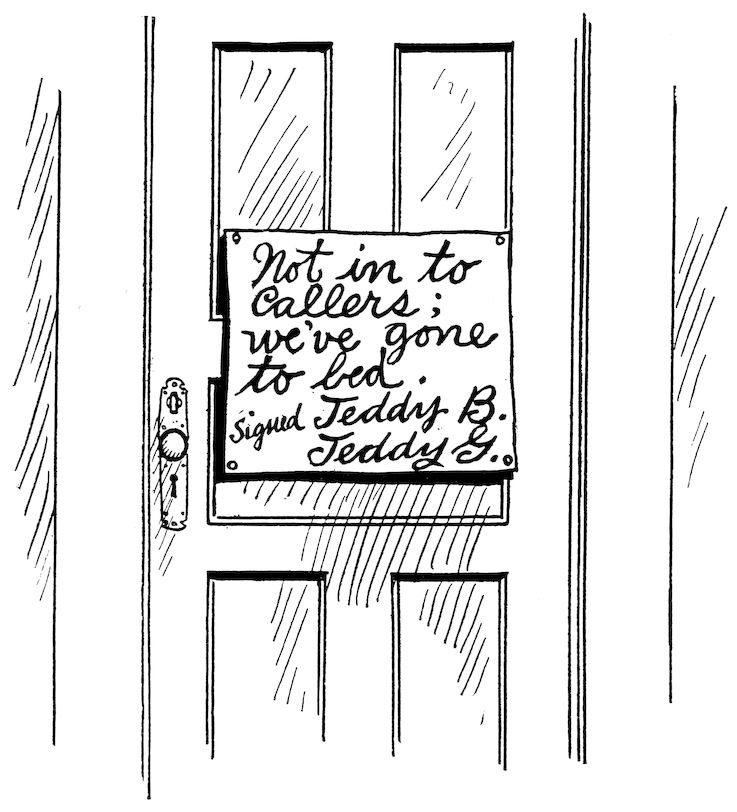 Not in to
Callers;
we've gone
to bed.
Signed Teddy B.
Teddy G.